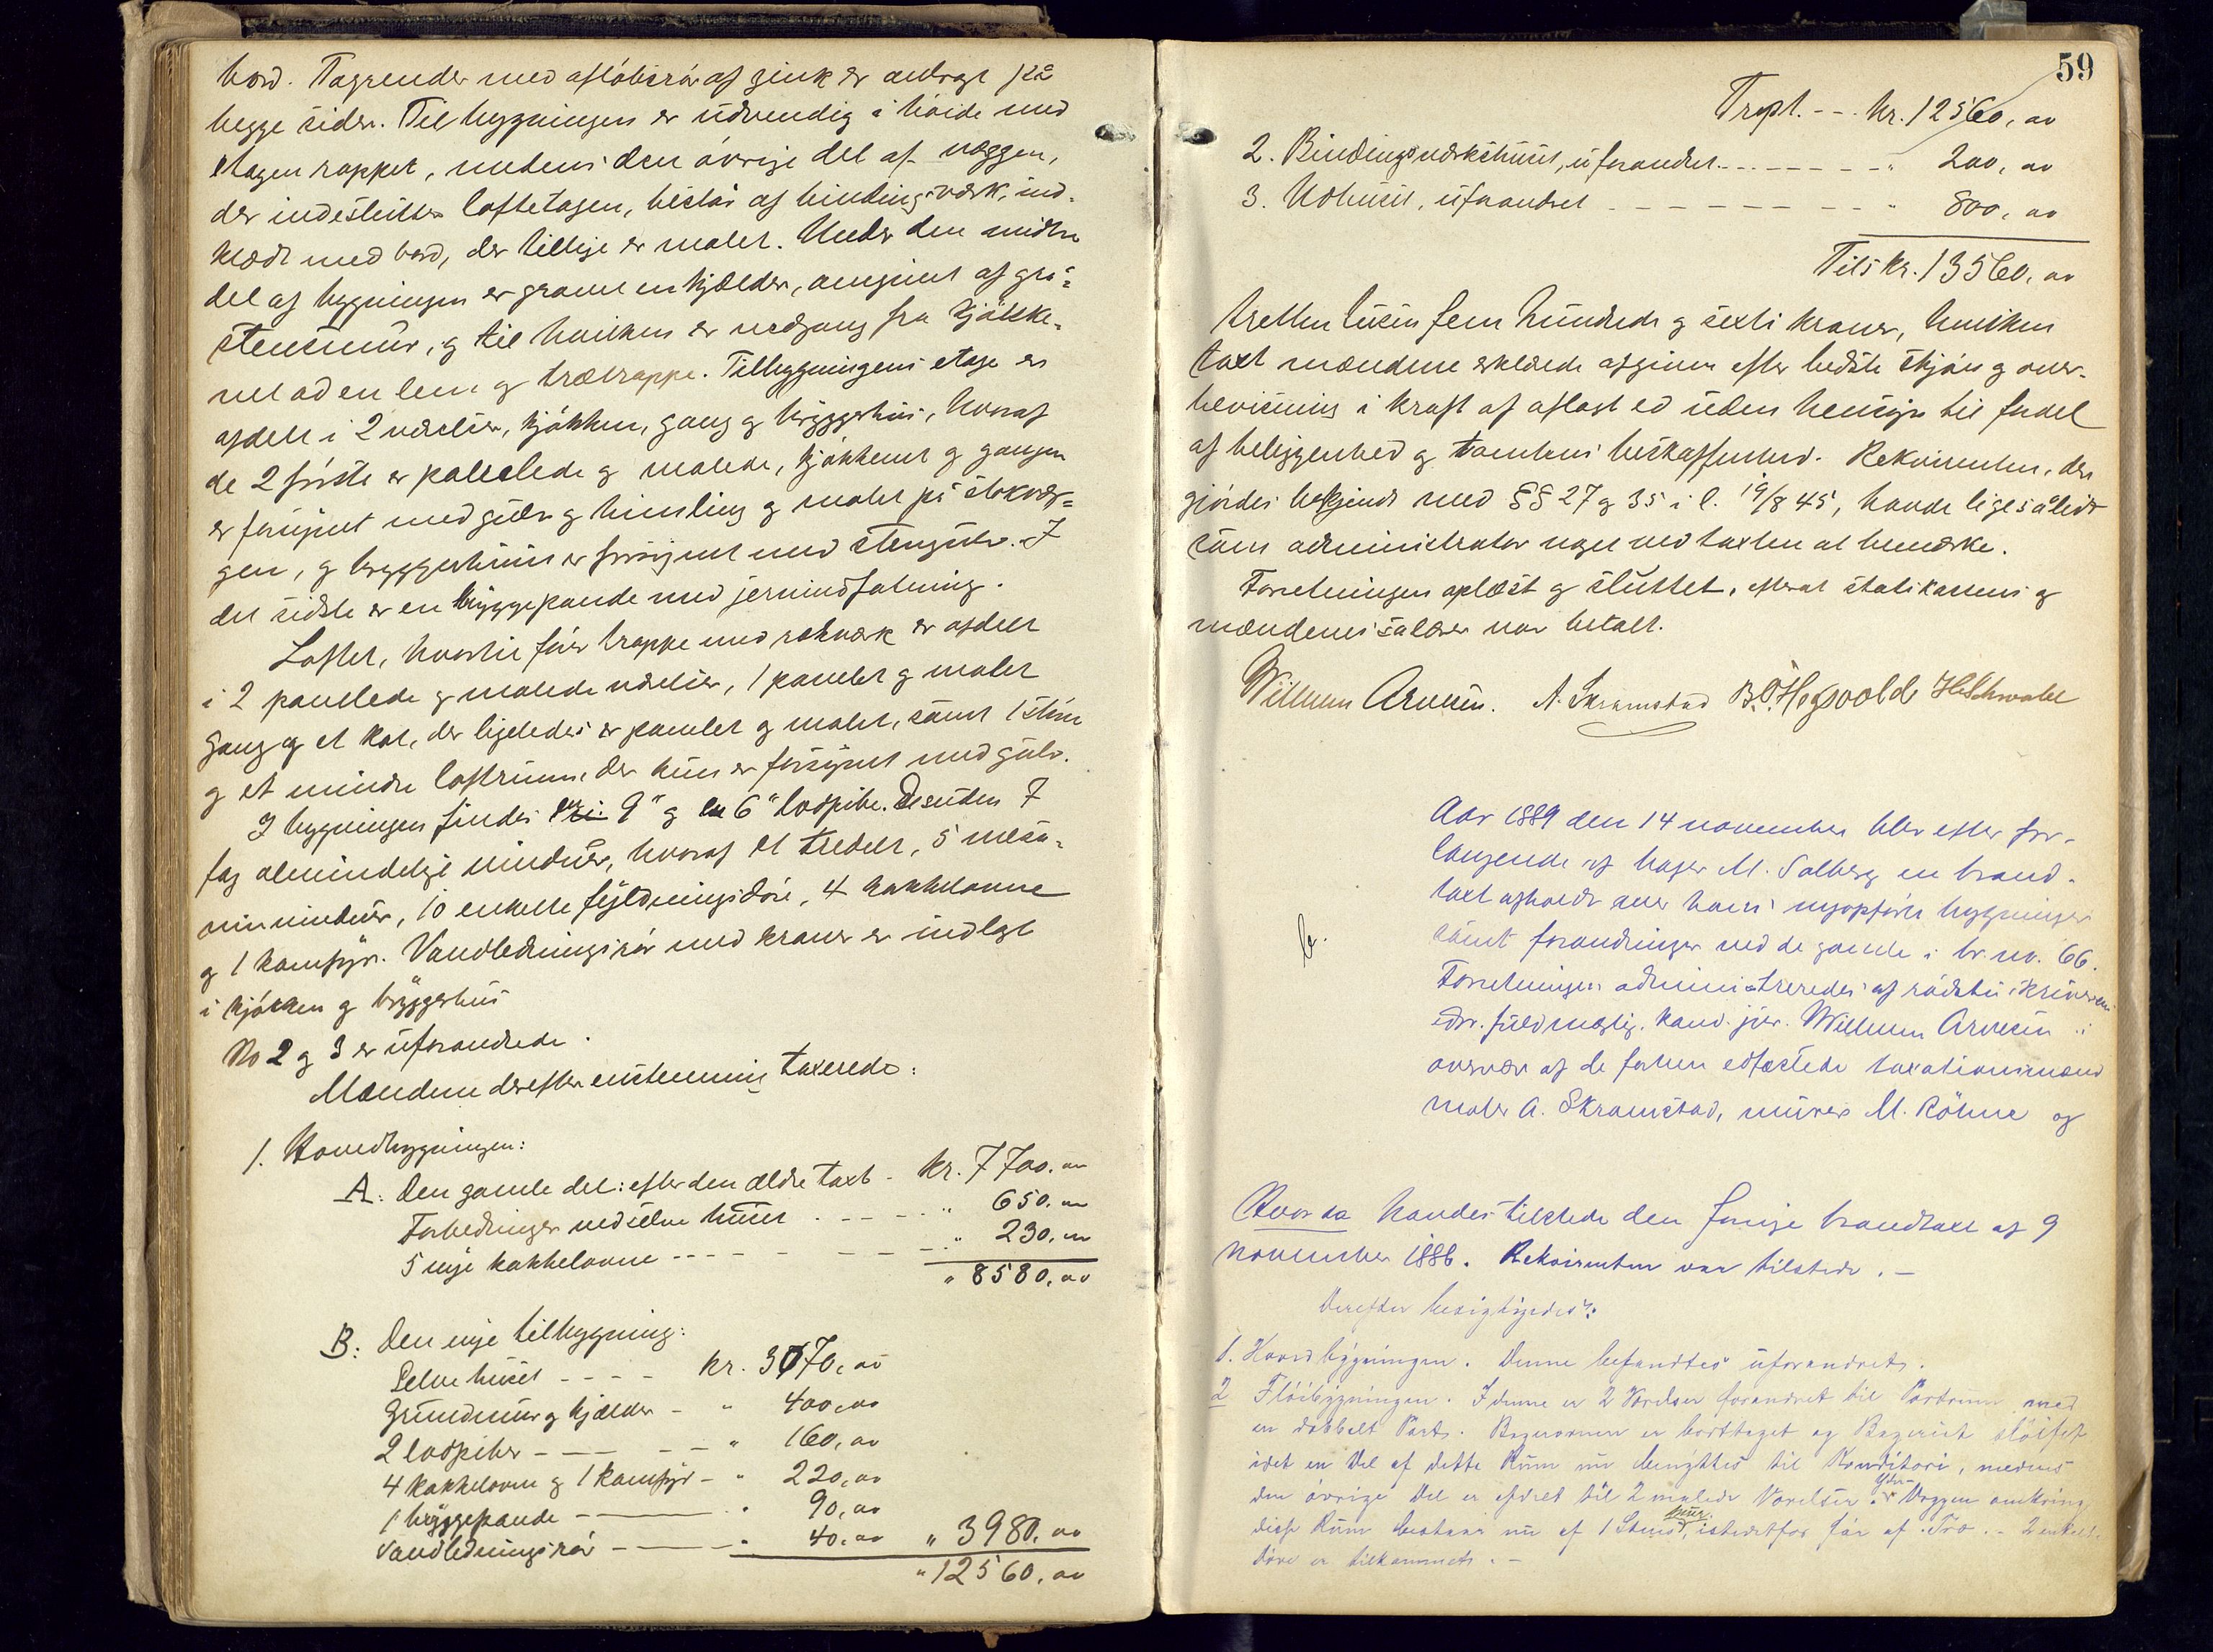 bord. Tagrender med afløbsrør af zink er anbragt på
begge sider. Tilbygningen er udvendig i høide med
etagen rappet, medens den øvrige del af væggen,
der indeslutter loftetagen, består af bindingsværk, ind-
klædt med bord, der tillige er malet. Under den midtre
del af bygningen er gravet en kjælder, omgivet af grå-
stensmur, og til hvilken er nedgang fra kjøkke-
net ad en lem og trætrappe. Tilbygningens etage er
afdelt i 2 værelser, kjøkken, gang og bryggerhus, hvoraf
de 2 første er panelede og malede, kjøkkenet og gangen
er forsynet med gulv og himling og malet på stokvæg-
gen, og bryggerhuset er forsynet med stengulv. I
det sidste er en bryggepande med jernindfatning.
Loftet, hvortil fører trappe med rækværk er afdelt
i 2 panelede og malede værelser, 1 panelet og malet
gang og et kot, der ligeledes er panelet og malet, samt 1 større
og et mindre loftsrum, der kun er forsynet med gulv.
I bygningen findes en 9" og en 6" lodpibe. Desuden 7
fag almindelige vinduer, hvoraf et tredelt, 5 mesa-
ninvinduer, 10 enkelte fyldningsdøre, 4 kakkelovne
og 1 komfyr. Vandledningsrør med kraner er indlagt
i kjøkken og bryggerhus
No 2 og 3 er uforandrede.
Mændene derefter enstemmig taxerede:
1. Hovedbygningen:
A: Den gamle del: efter den ældre taxt - kr. 7700.00
Forbedringer ved selve huset . - - - - " 650.00
5 nye kakkelovne - - - - - - - " 230.00
" 8580.00
B: Den nye tilbygning:
Selve huset - - - - kr. 3070.00
Grundmur og kjælder - " 400.00
2 lodpiber - - - - " 160.00
4 kakkelovne og 1 komfyr - " 220.00
1 bryggepande - - " 90.00
Vandledningsrør - - " 40.00 " 3980.00
" 12560.00
59
Trspt. - - kr. 12560.00
2. Bindingsværkshuset, uforandret - - - - - - " 200.00
3. Udhuset, uforandret - - - - - - - - - " 800.00
Tils kr. 13560.00
tretten tusen fem hundrede og sexti kroner, hvilken
taxt mændene erklærede afgiven efter bedste skjøn og over-
bevisning i kraft af aflagt ed uden hensyn til fordel
af beliggenhed og tomtens beskaffenhed. Rekvirenten, der
gjordes bekjendt med §§ 27 og 35 i l. 19/8 45, havde ligesålidt
som administrator noget ved taxten at bemærke.
Forretningen oplæst og sluttet, efterat statskassens og
mændenes salærer var betalt.
Willum Arvesen. A. Skramstad B. O. Hegvold H Schwabe
Aar 1889 den 14 november blev efter for-
langende af bager M. Solberg en brand-
taxt afholdt over hans nyopførte bygninger
samt forandringer ved de gamle i br. no. 66.
Forretningen administreredes af rådstuskriverens
edsv. fuldmægtig, kand. jur. Willum Arvesen i
overvær af de forhen edfæstede taxationsmænd
maler A. Skramstad, murer M. Röhne og
Hvor da havdes tilstede den forrige brandtaxt af 9
november 1886. Rekvirenten var tilstede. -
Derefter besigtigedes:
1. Hovedbygningen. Denne befandtes uforandret.
2 Fløibygningen. I denne er 2 Værelser forandret til Portrum med
en dobbelt Port. Bagerovnen er borttaget og Bageriet sløifet
idet en Del af dette Rum nu benyttes til Konditori, medens
den øvrige Del er afdelt til 2 malede Værelser. Yder- Væggen omkring
disse Rum bestaar nu af 1 Stens mur, istedetfor før af Træ. - 2 enkelte
Døre er tilkommet. -